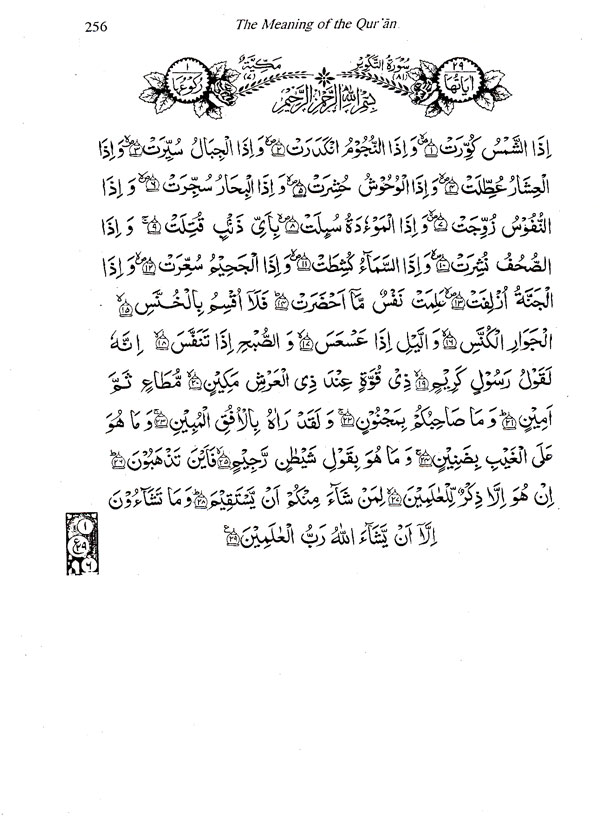 256 The Meaning of the Qur'ān
٢٩ اٰيَاتُهَا سُوْرَةُ التَّكْوِيْرِ (٨١) مَكِّيَّةٌ (٧) ١ رُكُوْعُهَا
بِسْمِ اللّٰهِ الرَّحْمٰنِ الرَّحِيْمِ
اِذَا الشَّمْسُ كُوِّرَتْ ١ وَاِذَا النُّجُوْمُ انْكَدَرَتْ ٢ وَاِذَا الْجِبَالُ سُيِّرَتْ ٣ وَاِذَا
الْعِشَارُ عُطِّلَتْ ٤ وَاِذَا الْوُحُوْشُ حُشِرَتْ ٥ وَاِذَا الْبِحَارُ سُجِّرَتْ ٦ وَاِذَا
النُّفُوْسُ زُوِّجَتْ ٧ وَاِذَا الْمَوْءٗدَةُ سُىِٕلَتْ ٨ بِاَىِّ ذَنْۢبٍ قُتِلَتْ ٩ وَاِذَا
الصُّحُفُ نُشِرَتْ ١٠ وَاِذَا السَّمَآءُ كُشِطَتْ ١١ وَاِذَا الْجَحِيْمُ سُعِّرَتْ ١٢ وَاِذَا
الْجَنَّةُ اُزْلِفَتْ ١٣ عَلِمَتْ نَفْسٌ مَّآ اَحْضَرَتْ ١٤ فَلَآ اُقْسِمُ بِالْخُنَّسِ ١٥
الْجَوَارِ الْكُنَّسِ ١٦ وَالَّيْلِ اِذَا عَسْعَسَ ١٧ وَالصُّبْحِ اِذَا تَنَفَّسَ ١٨ اِنَّهٗ
لَقَوْلُ رَسُوْلٍ كَرِيْمٍ ١٩ ذِىْ قُوَّةٍ عِنْدَ ذِى الْعَرْشِ مَكِيْنٍ ٢٠ مُّطَاعٍ ثَمَّ
اَمِيْنٍ ٢١ وَمَا صَاحِبُكُمْ بِمَجْنُوْنٍ ٢٢ وَلَقَدْ رَاٰهُ بِالْاُفُقِ الْمُبِيْنِ ٢٣ وَمَا هُوَ
عَلَى الْغَيْبِ بِضَنِيْنٍ ٢٤ وَمَا هُوَ بِقَوْلِ شَيْطٰنٍ رَّجِيْمٍ ٢٥ فَاَيْنَ تَذْهَبُوْنَ ٢٦
اِنْ هُوَ اِلَّا ذِكْرٌ لِّلْعٰلَمِيْنَ ٢٧ لِمَنْ شَآءَ مِنْكُمْ اَنْ يَّسْتَقِيْمَ ٢٨ وَمَا تَشَآءُوْنَ
اِلَّآ اَنْ يَّشَآءَ اللّٰهُ رَبُّ الْعٰلَمِيْنَ ٢٩
١
ع ٢٩
٦